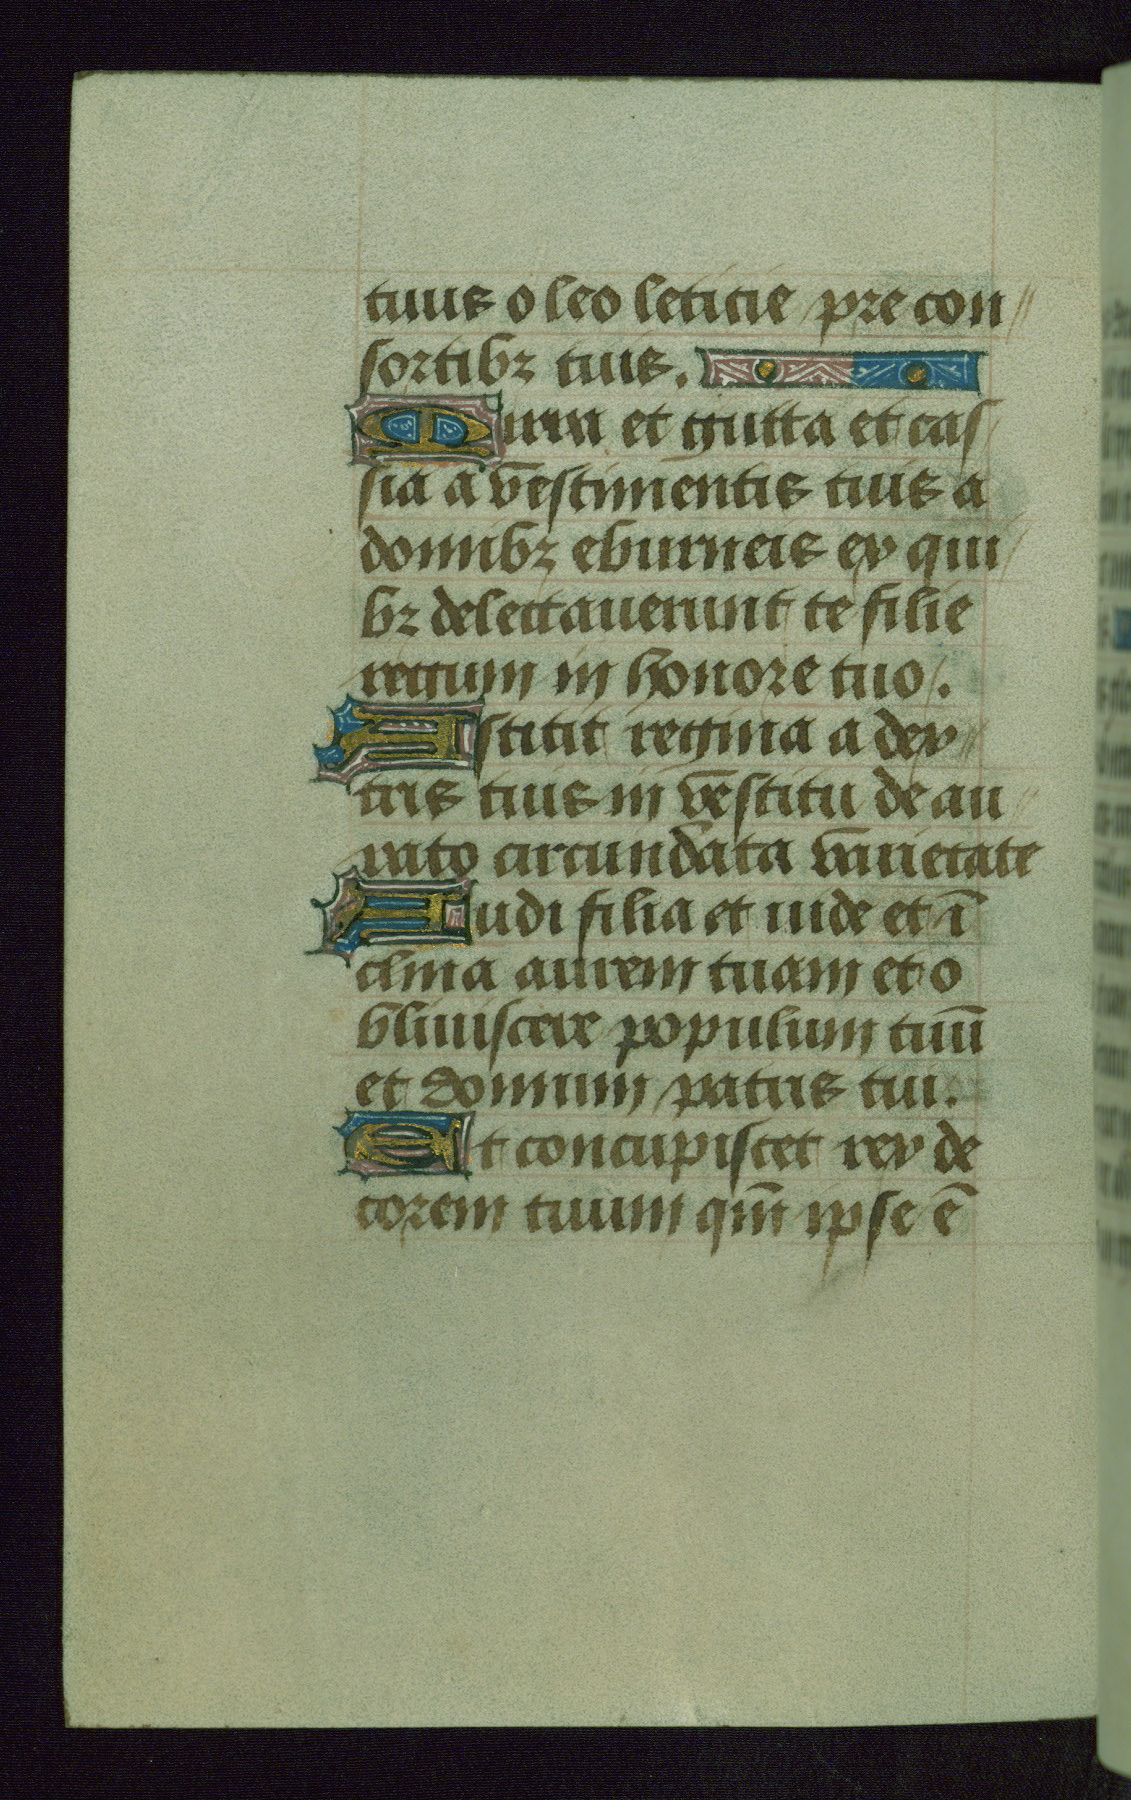 tuus oleo leticie pre con
sortibꝫ tuis.
Mirra et gutta et cas
sia a vestimentis tuis a
domibꝫ eburneis ex qui
bꝫ delectauerunt te filie
regum in honore tuo.
Astitit regina a dex
tris tuis in vestitu deau
rato circundata varietate
Audi filia et uide et ī
clina aurem tuam et o
bliuiscere populum tuū
et domum patris tui.
Et concupiscet rex de
corem tuum qm̄ ipse ē